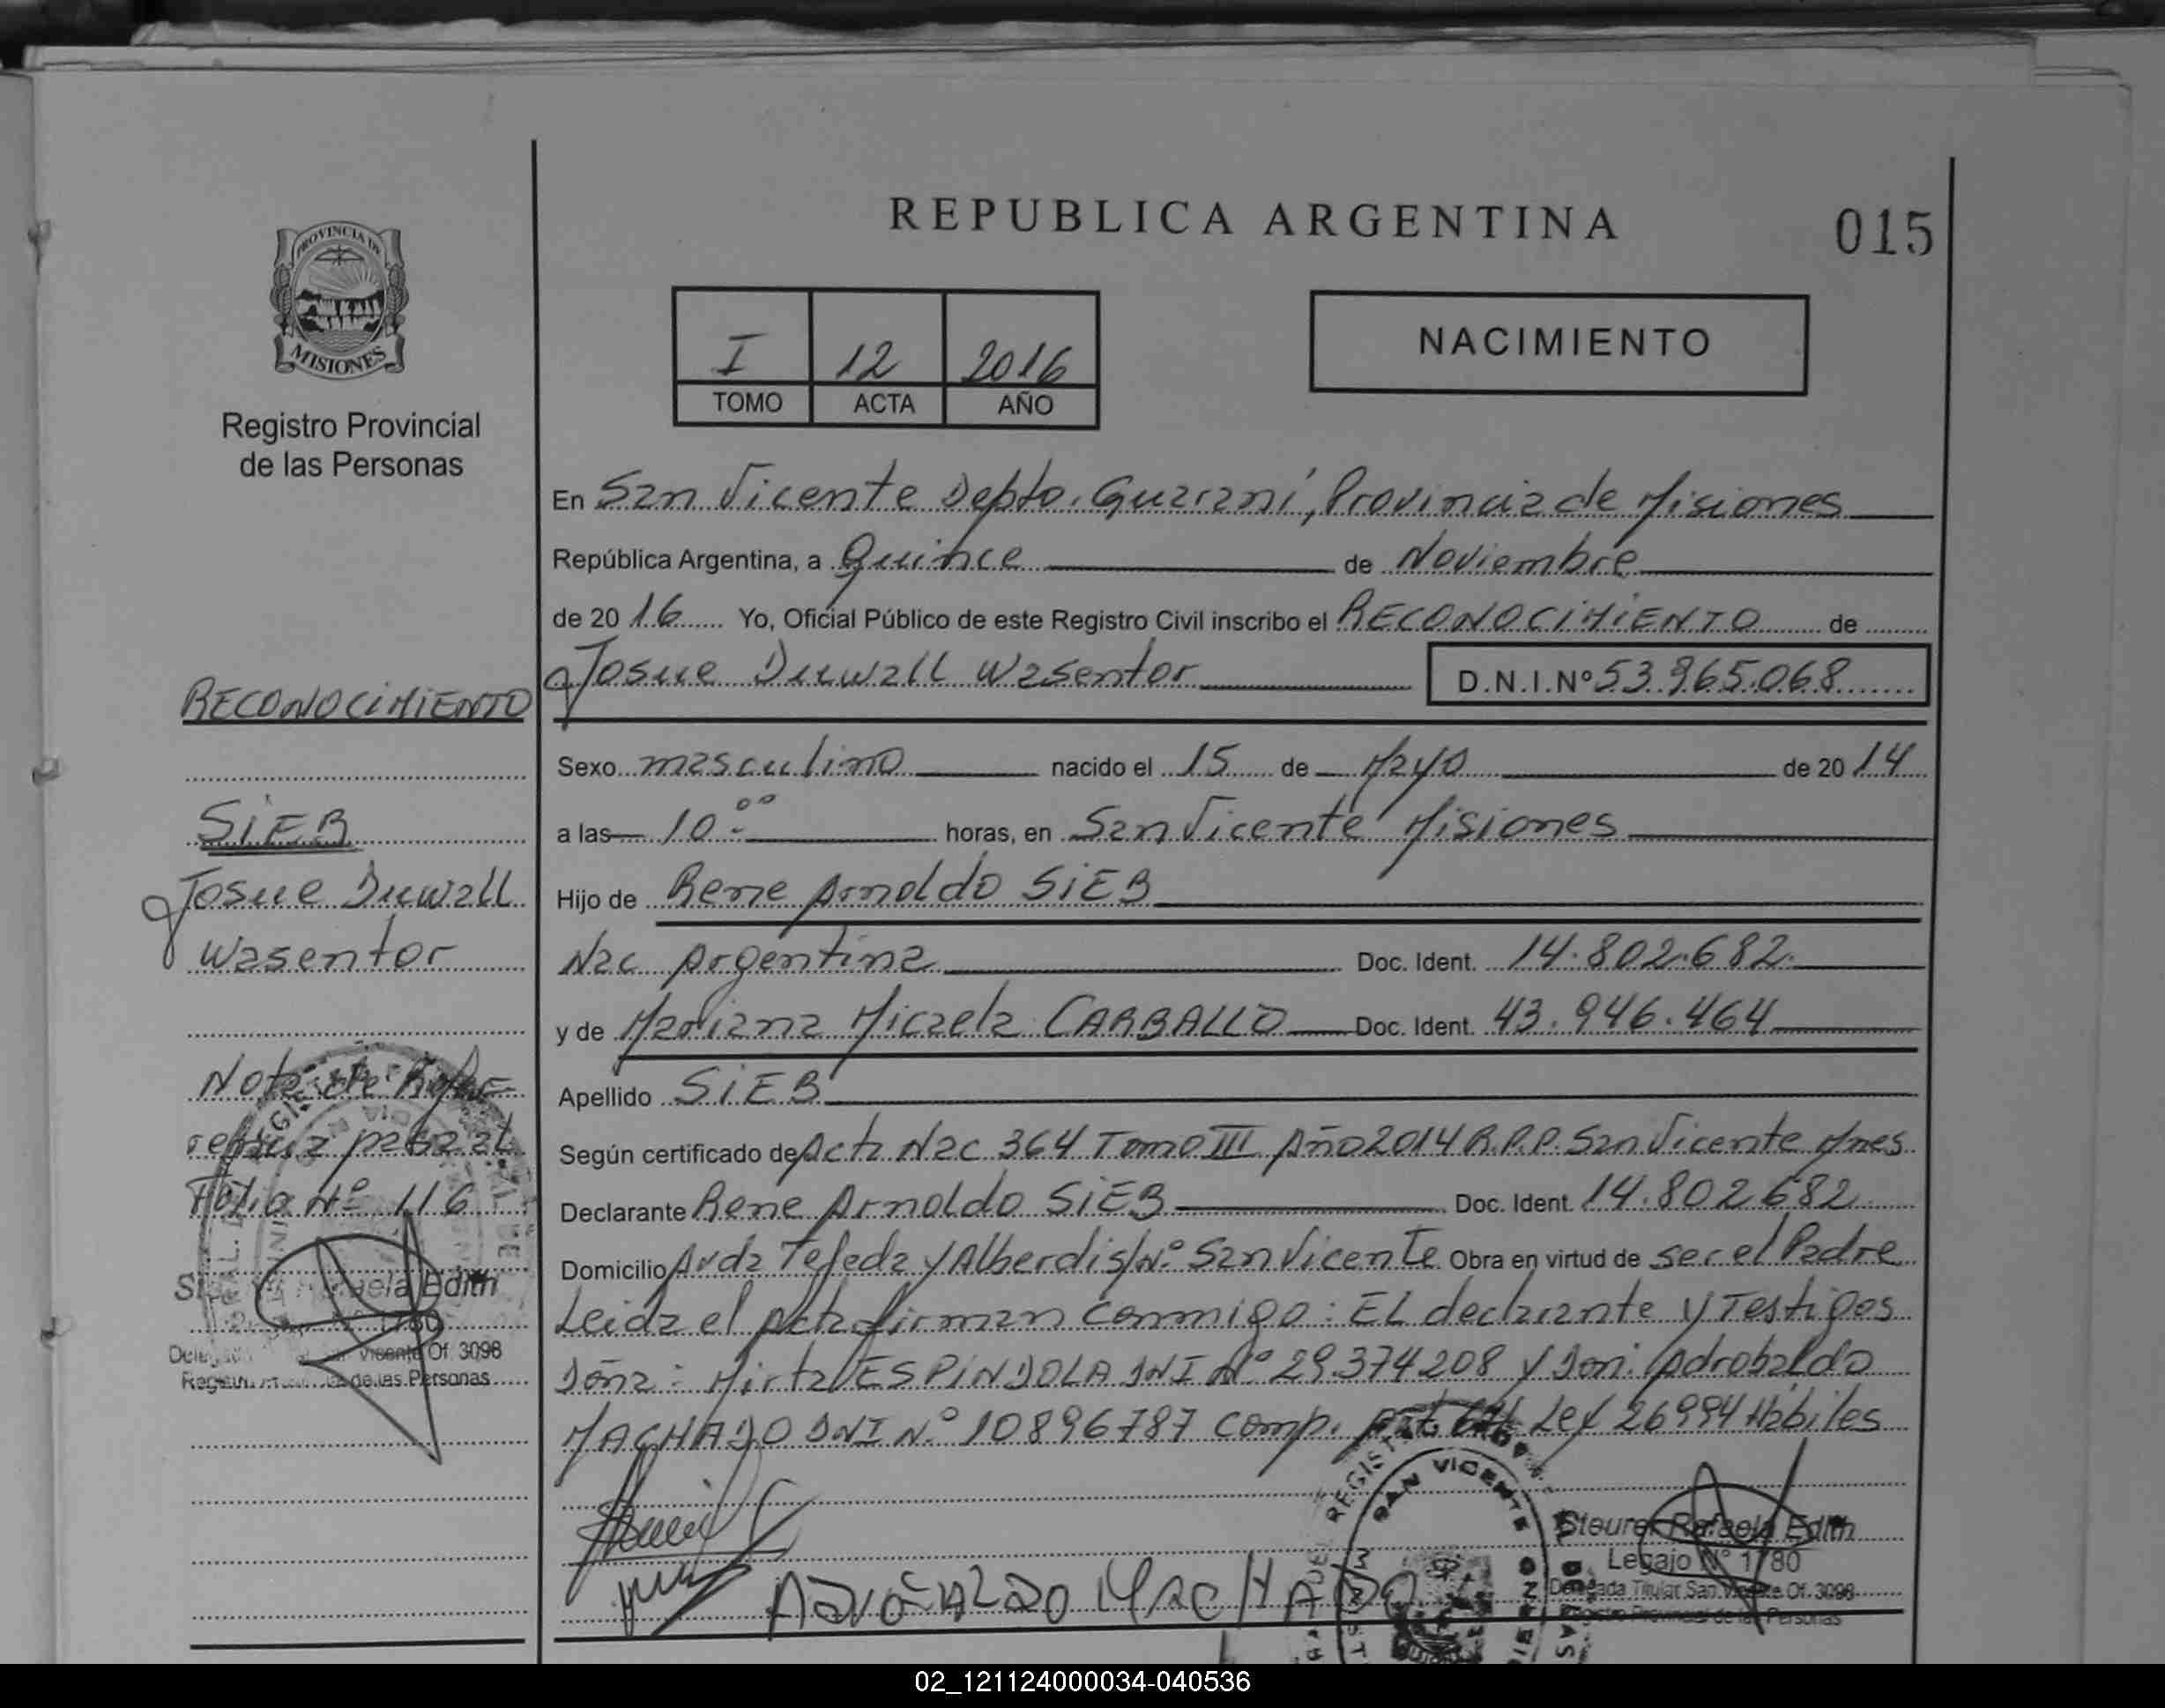 REPUBLICA ARGENTINA
015
PROVINCIA DE
MISIONES
Registro Provincial
de las Personas
I 12 2016
TOMO ACTA AÑO
NACIMIENTO
En San Vicente Depto. Guaraní, Provincia de Misiones
República Argentina, a Quince de Noviembre
de 20 16 Yo, Oficial Público de este Registro Civil inscribo el RECONOCIMIENTO de
Josue Duwall Wasentor D.N.I.Nº 53.965.068
Sexo masculino nacido el 15 de Mayo de 20 14
a las 10:00 horas, en San Vicente Misiones
Hijo de Rene Arnoldo SIEB
Nac Argentina Doc. Ident. 14.802.682.
y de Mariana Micaela CARBALLO Doc. Ident. 43.946.464
Apellido SIEB
Según certificado de Acta Nac 364 Tomo III Año 2014 R.P.P. San Vicente Mnes
Declarante Rene Arnoldo SIEB Doc. Ident. 14.802682
Domicilio Avda Tejeda y Alberdi s/Nº San Vicente Obra en virtud de ser el Padre
Leida el Acta firman conmigo: EL declarante y Testigos
Doña: Mirta ESPINDOLA DNI Nº 29.374208 y Don: Adrobaldo
MACHADO DNI Nº 10896787 Comp. Ley 26994 Habiles
MACHADO
REGIST
SAN VICENTE
Steurer Rafaela Edith
Legajo Nº 1780
Delegada Titular San Vicente Of. 3098
Registro Provincial de las Personas
RECONOCIMIENTO
SIEB
Josue Duwall
Wasentor
Nota de Refe
rencia
Folio Nº 116
Edith
1780
Vicente Of. 3098
de las Personas
02_121124000034-040536